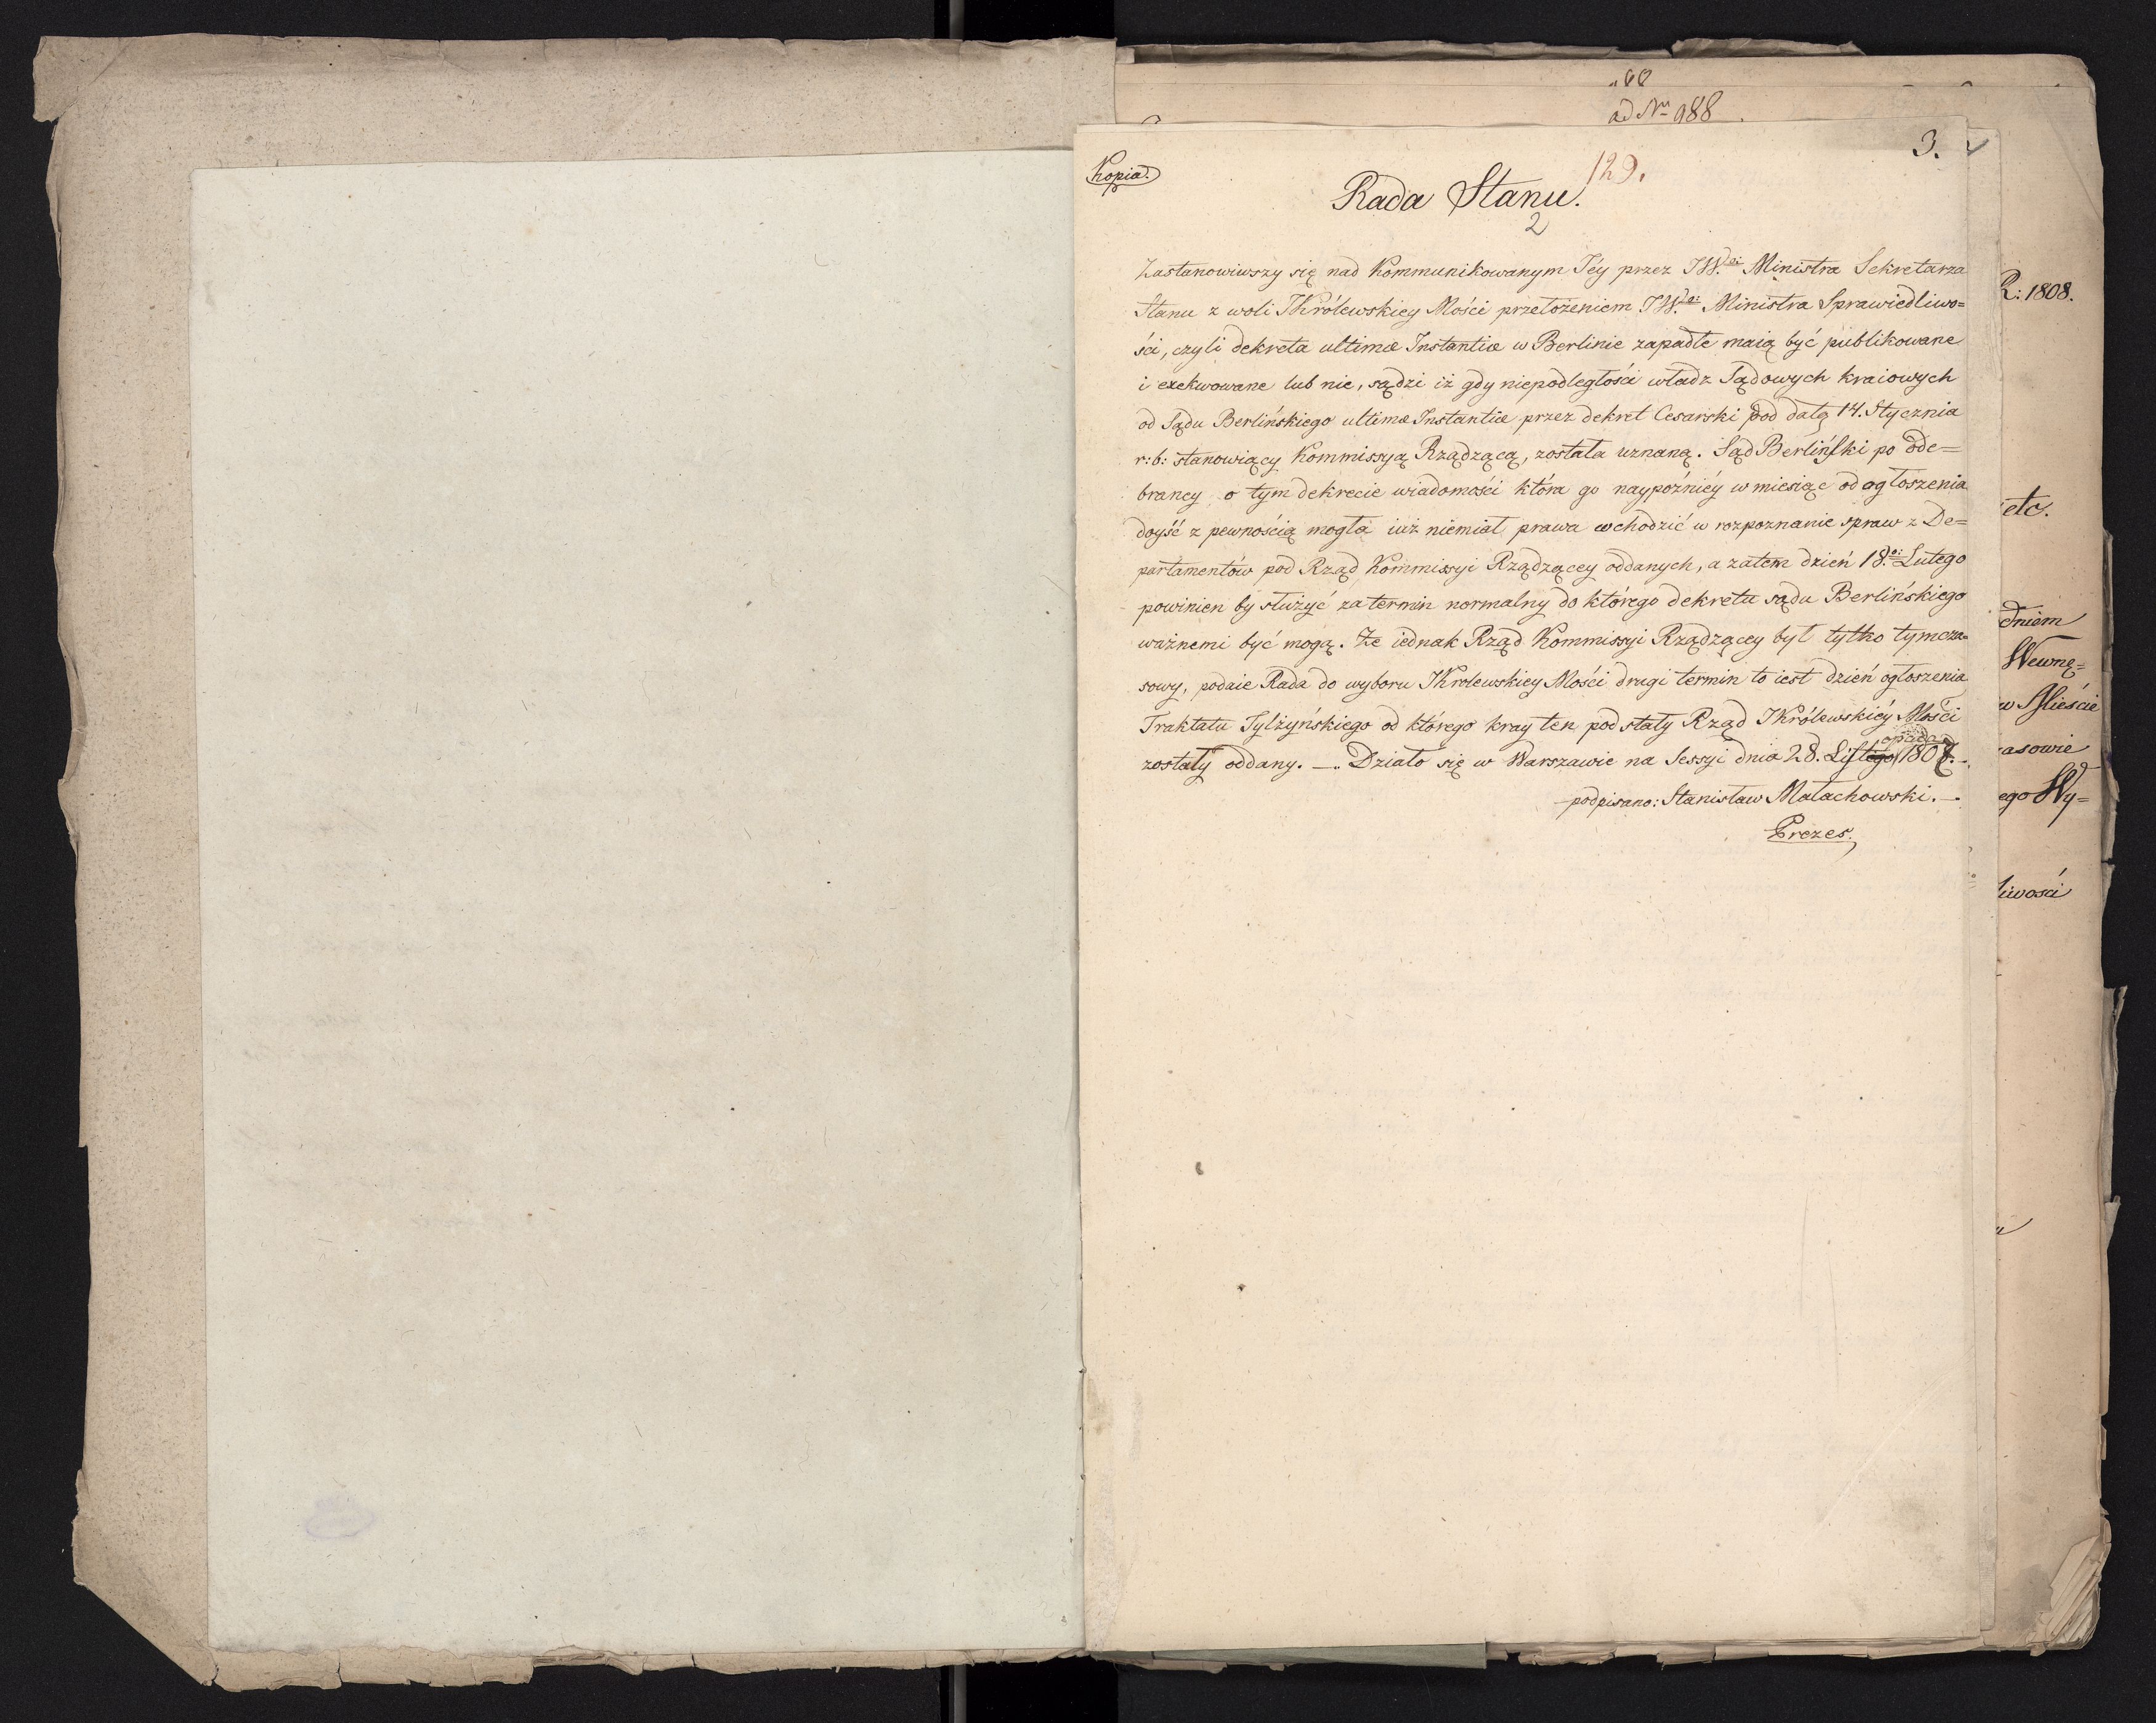 ad Nru 988
3.
Kopia.
129.
Rada Stanu.
2
Zastanowiwszy się nad Kommunikowanym Jéy przez JW.o: Ministra Sekretarza
Stanu z woli JKrólewskiey Mości przełożeniem JW.o: Ministra Sprawiedliwo=
ści, czyli dekreta ultimæ Instantiæ w Berlinie zapadłe maią być publikowane
i exekwowane lub nie, sądzi iż gdy niepodległości władz Sądowych kraiowych
od Sądu Berlińskiego ultimæ Instantiæ przez dekret Cesarski pod datą 14. Stycznia
r: b: stanowiący Kommissyą Rządzącą, została uznaną. Sąd Berliński po ode=
braney o tym dekrecie wiadomości która go naypoźniéy w miesiąc od ogłoszenia
doyść z pewnością mogła iuż niemiał prawa wchodzić w rozpoznanie spraw z De=
partamentów pod Rząd Kommissyi Rządzącey oddanych, a zatem dzień 18.o: Lutego
powinien by służyć za termin normalny do którego dekreta sądu Berlińskiego
ważnemi być mogą. Że iednak Rząd Kommissyi Rządzącey był tylko tymcza=
sowy, podaie Rada do wyboru JKrolewskiey Mości drugi termin to iest dzień ogłoszenia
Traktatu Tylżyńskiego od którego kray ten pod stały Rząd JKrólewskiéy Mości
opada
zostały oddany. —. Działo się w Warszawie na Sessyi dnia 28. Listego 1807. —.
podpisano: Stanisław Małachowski. —.
Prezes.
R: 1808.
etc.
dniem
Wewnę=
w Mieście
asowie
ego Wy=
liwości